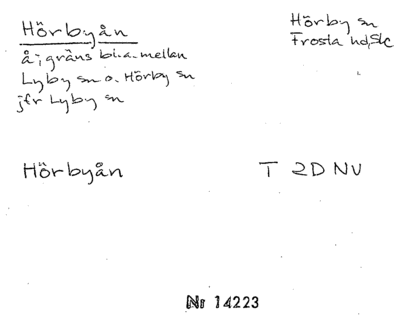 Hörbyån
å; gräns bl.a. mellan
Lyby sn o. Hörby sn
jfr Lyby sn
Hörby sn
Frosta hd, Sk
Hörbyån
T 2D NV
Nr 14223